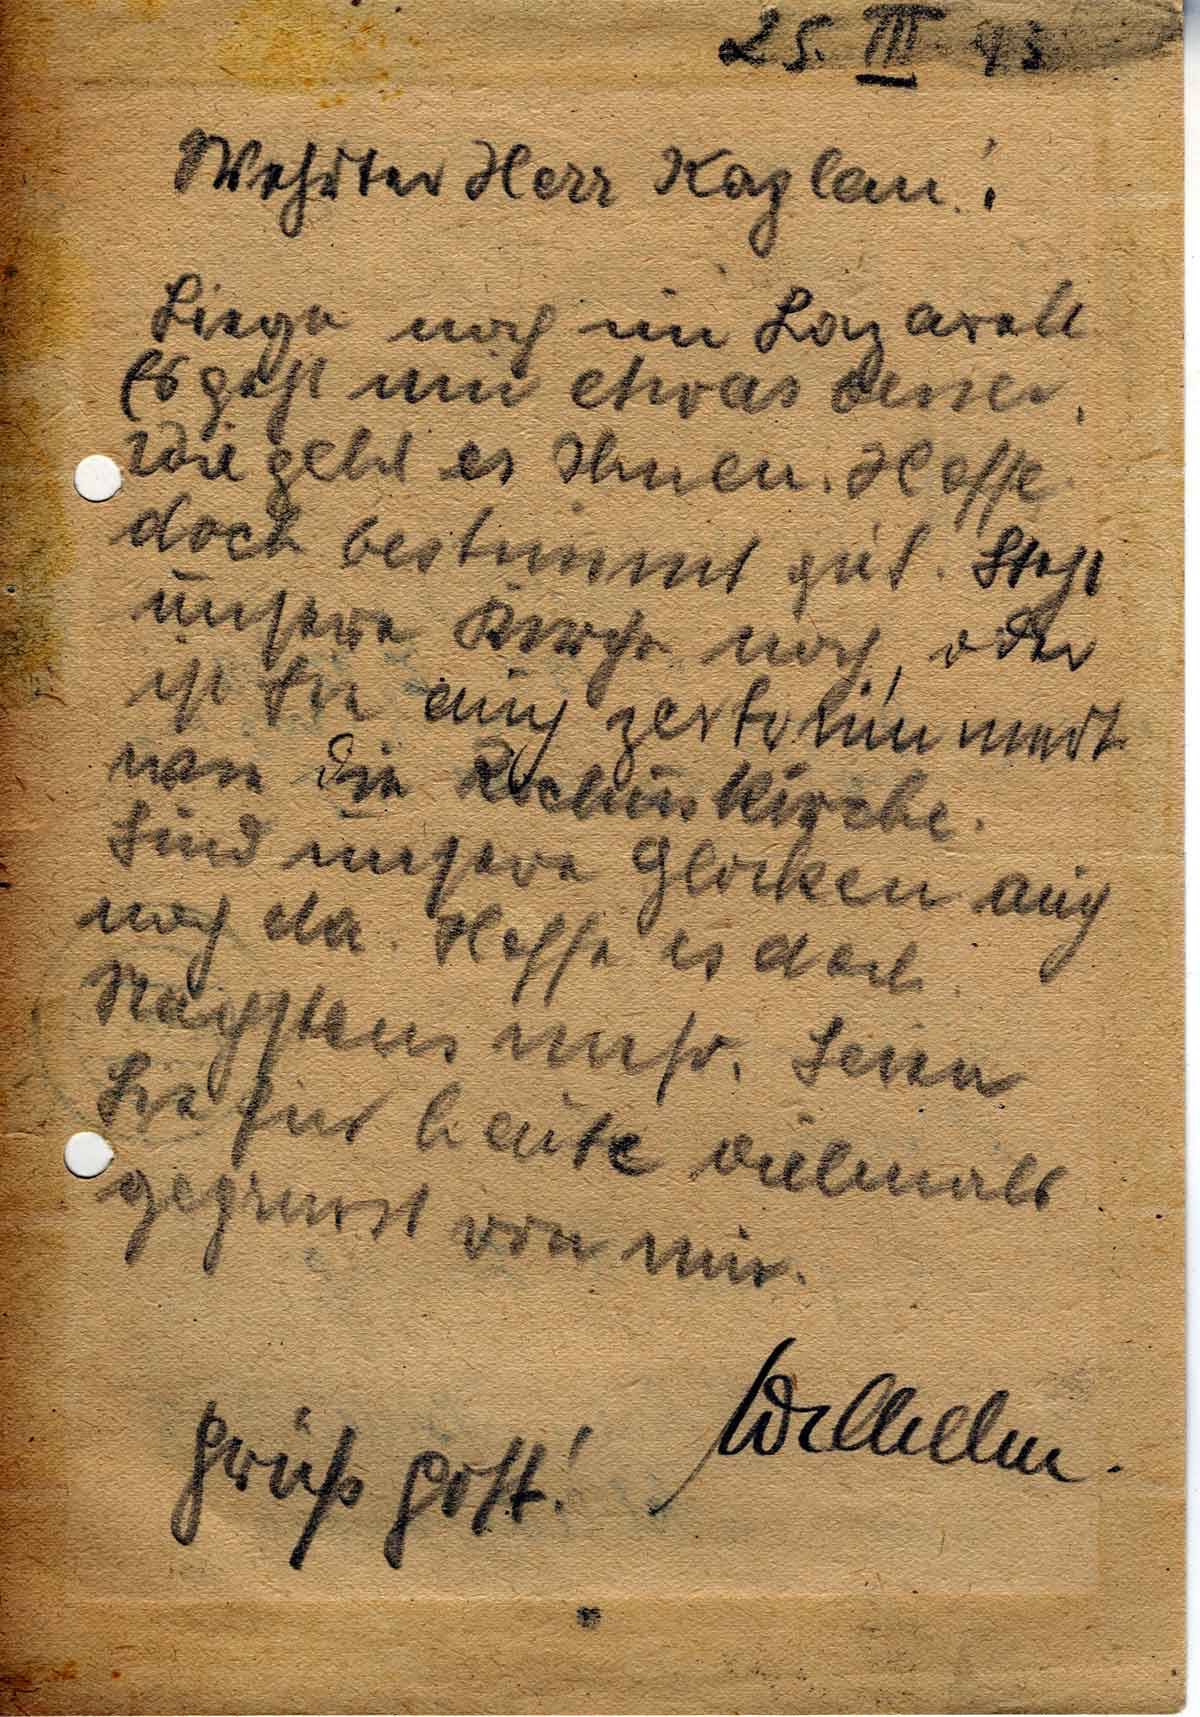 25. III. 43
Wehrter Herr Kaplan!
Liege noch im Lazarett
Es geht mir etwas besser.
Wie geht es Ihnen. Hoffe
doch bestimmt gut. Steht
unsere Kirche noch, oder
ist Sie auch zertrümmert
wie die Rochuskirche.
Sind unsere Glocken auch
noch da. Hoffe es doch.
Nächstens mehr. Seien
Sie für heute vielmals
gegrüsst von mir.
Wilhelm.
Grüß Gott!